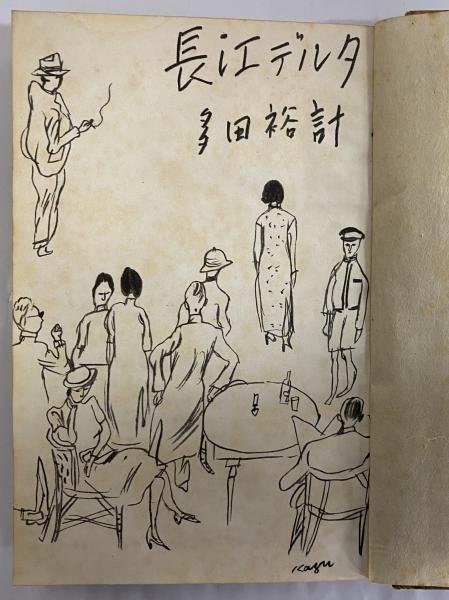 長江デルタ
多田裕計
Kazu